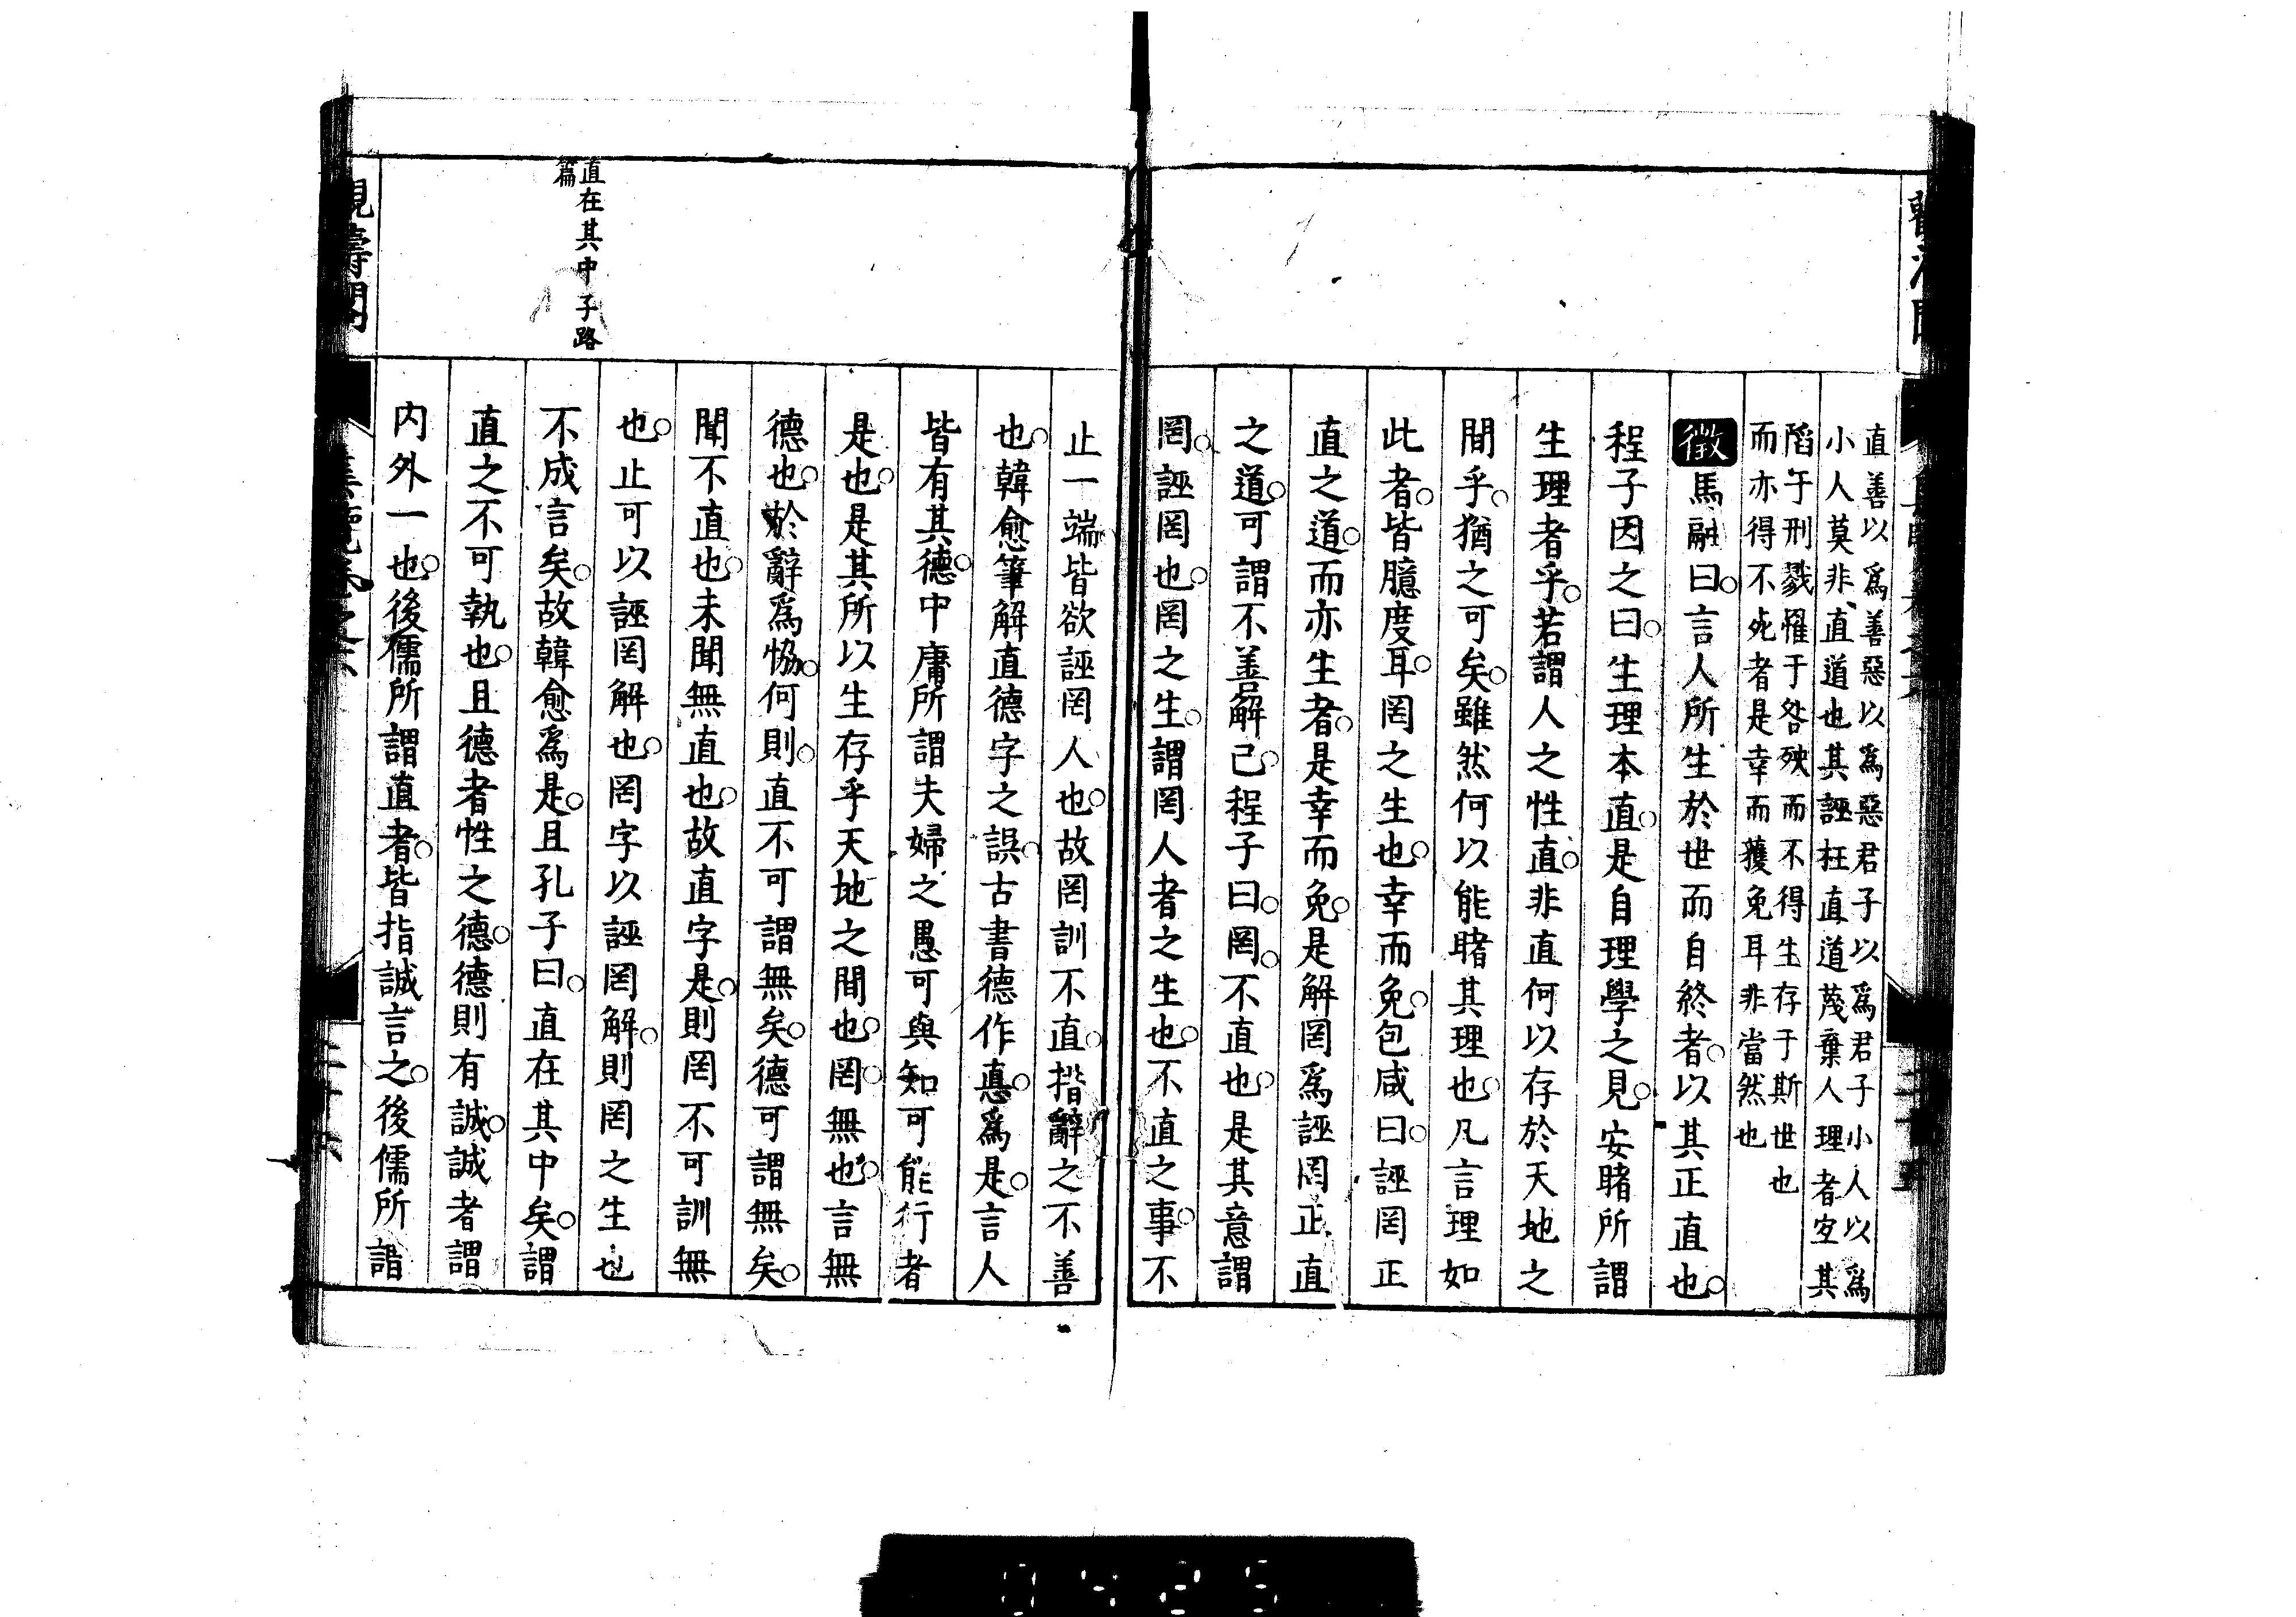 直善以爲善惡以爲惡君子以爲君子小人以爲
小人莫非直道也其誣枉直道蔑棄人理者宜其
陷于刑戮罹于咎殃而不得生存于斯世也
而亦得不死者是幸而獲免耳非當然也
徵馬融曰言人所生於世而自終者以其正直也
程子因之曰生理本直是自理學之見安睹所謂
生理者乎若謂人之性直非直何以存於天地之
間乎猶之可矣雖然何以能睹其理也凡言理如
此者皆臆度耳罔之生也幸而免包咸曰誣罔正
直之道而亦生者是幸而免是解罔爲誣罔正直
之道可謂不善解已程子曰罔不直也是其意謂
罔誣罔也罔之生謂罔人者之生也不直之事不
止一端皆欲誣罔人也故罔訓不直措辭之不善
也韓愈筆解直德字之誤古書德作悳爲是言人
皆有其德中庸所謂夫婦之愚可與知可能行者
是也是其所以生存乎天地之間也罔無也言無
德也於辭爲恊何則直不可謂無矣德可謂無矣
聞不直也未聞無直也故直字是則罔不可訓無
也止可以誣罔解也罔字以誣罔解則罔之生也
不成言矣故韓愈爲是且孔子曰直在其中矣謂
直之不可執也且德者性之德德則有誠誠者謂
内外一也後儒所謂直者皆指誠言之後儒所謂
直在其中子路
篇